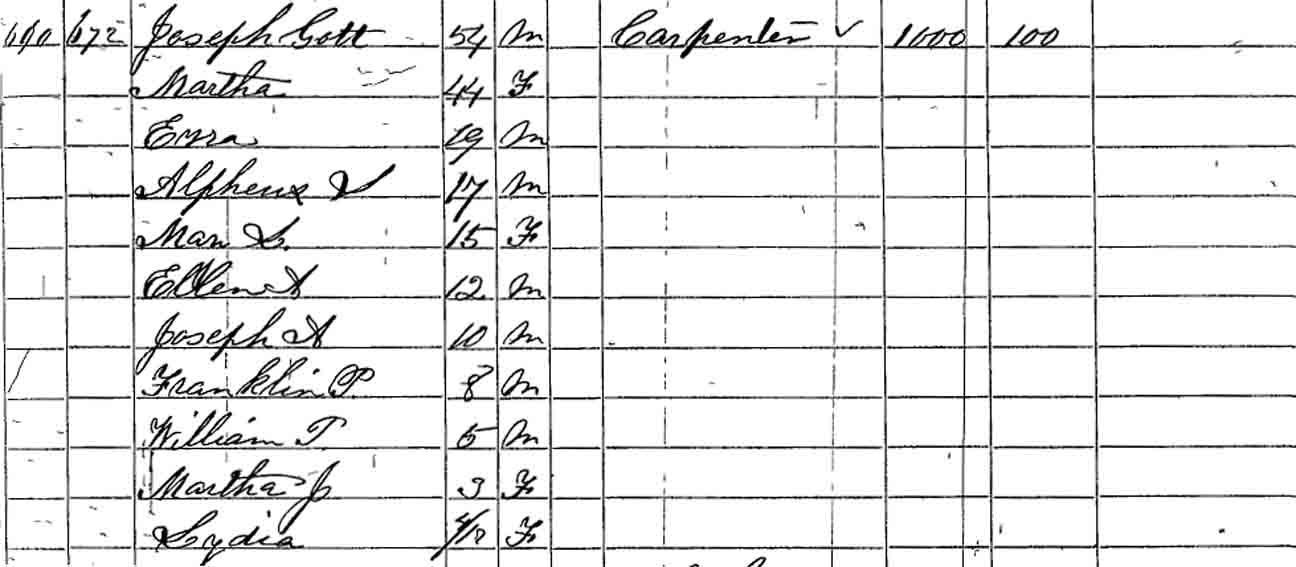 690 672 Joseph Gott 54 M Carpenter ✓ 1000 100
Martha 44 F
Ezra 19 M
Alpheus V 17 M
Mary S. 15 F
Ellen A 12 M
Joseph A 10 M
Franklin P. 8 M
William T. 5 M
Martha J 3 F
Lydia 4/12 F